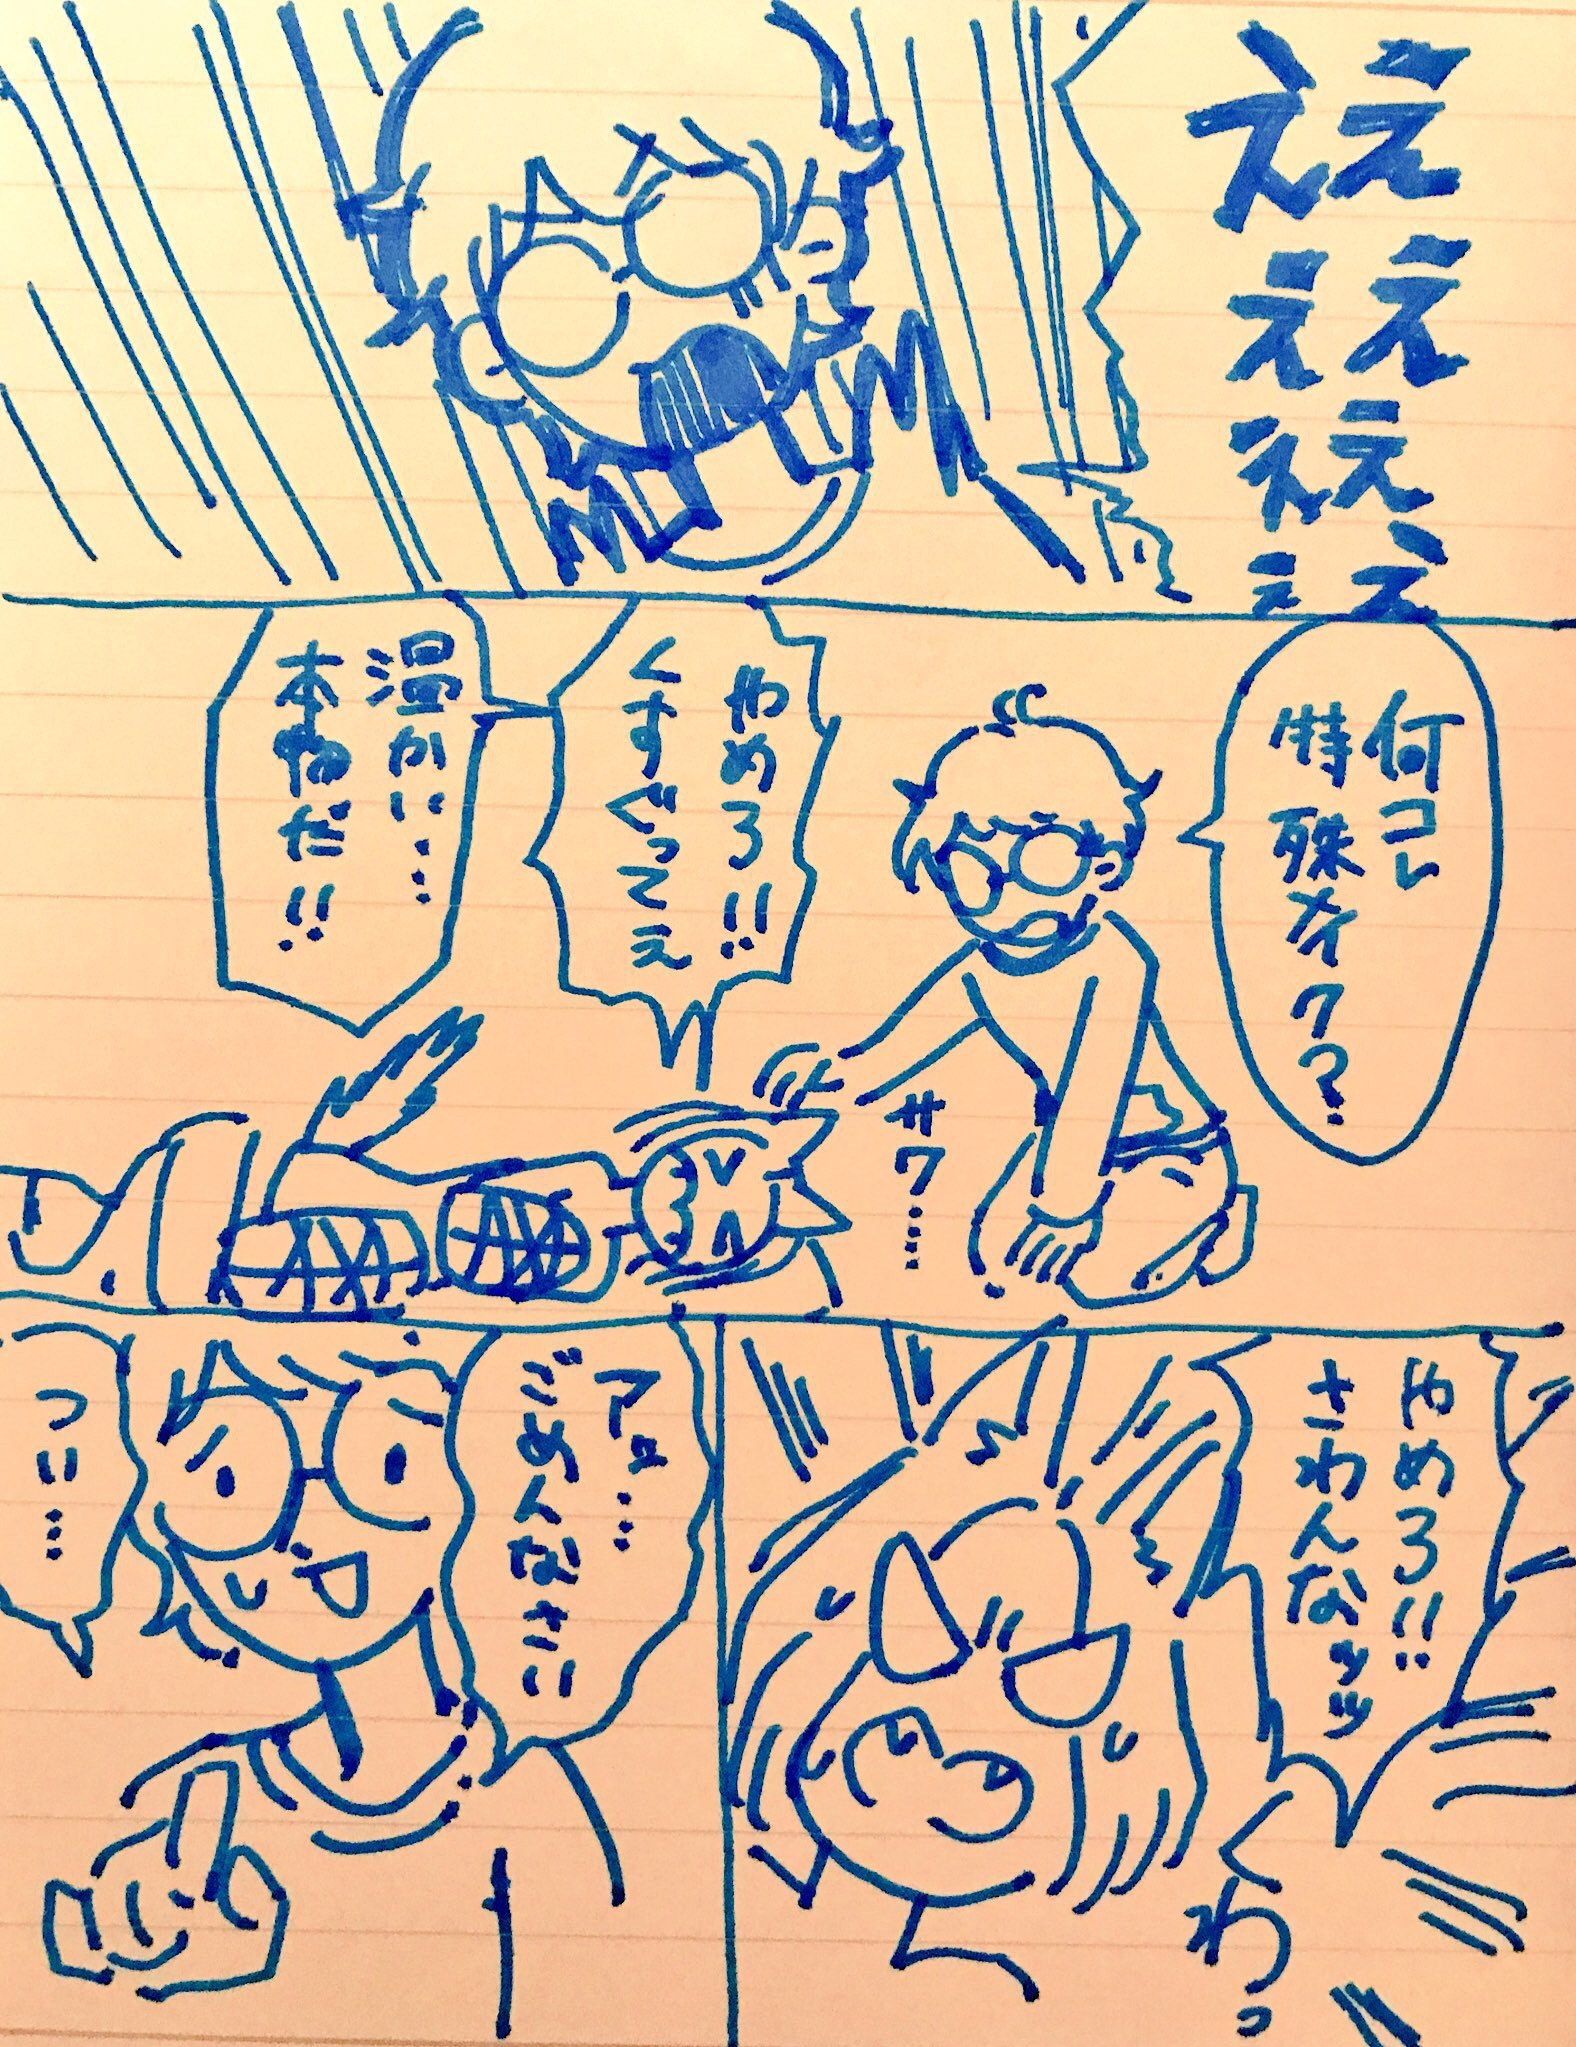 ええええ
ええええ
何コレ
特殊メイク?
やめろ!!
くすぐってえ
温かい…
本物だ!!
サワ…
やめろ!!
さわんなッッ
わっ
アッ…
ごめんなさい
つい…